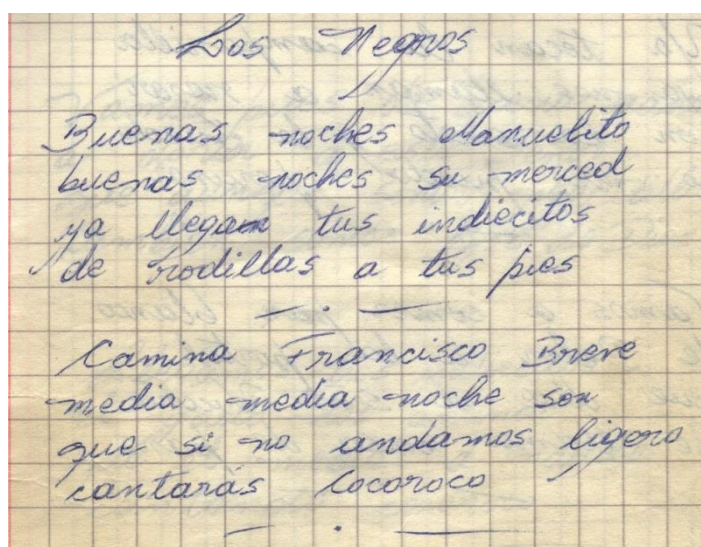 Los Negros
Buenas noches Manuelito
buenas noches su merced
ya llegan tus indiecitos
de rodillas a tus pies
Camina Francisco Breve
media media noche son
que si no andamos ligero
cantarás Cocoroco